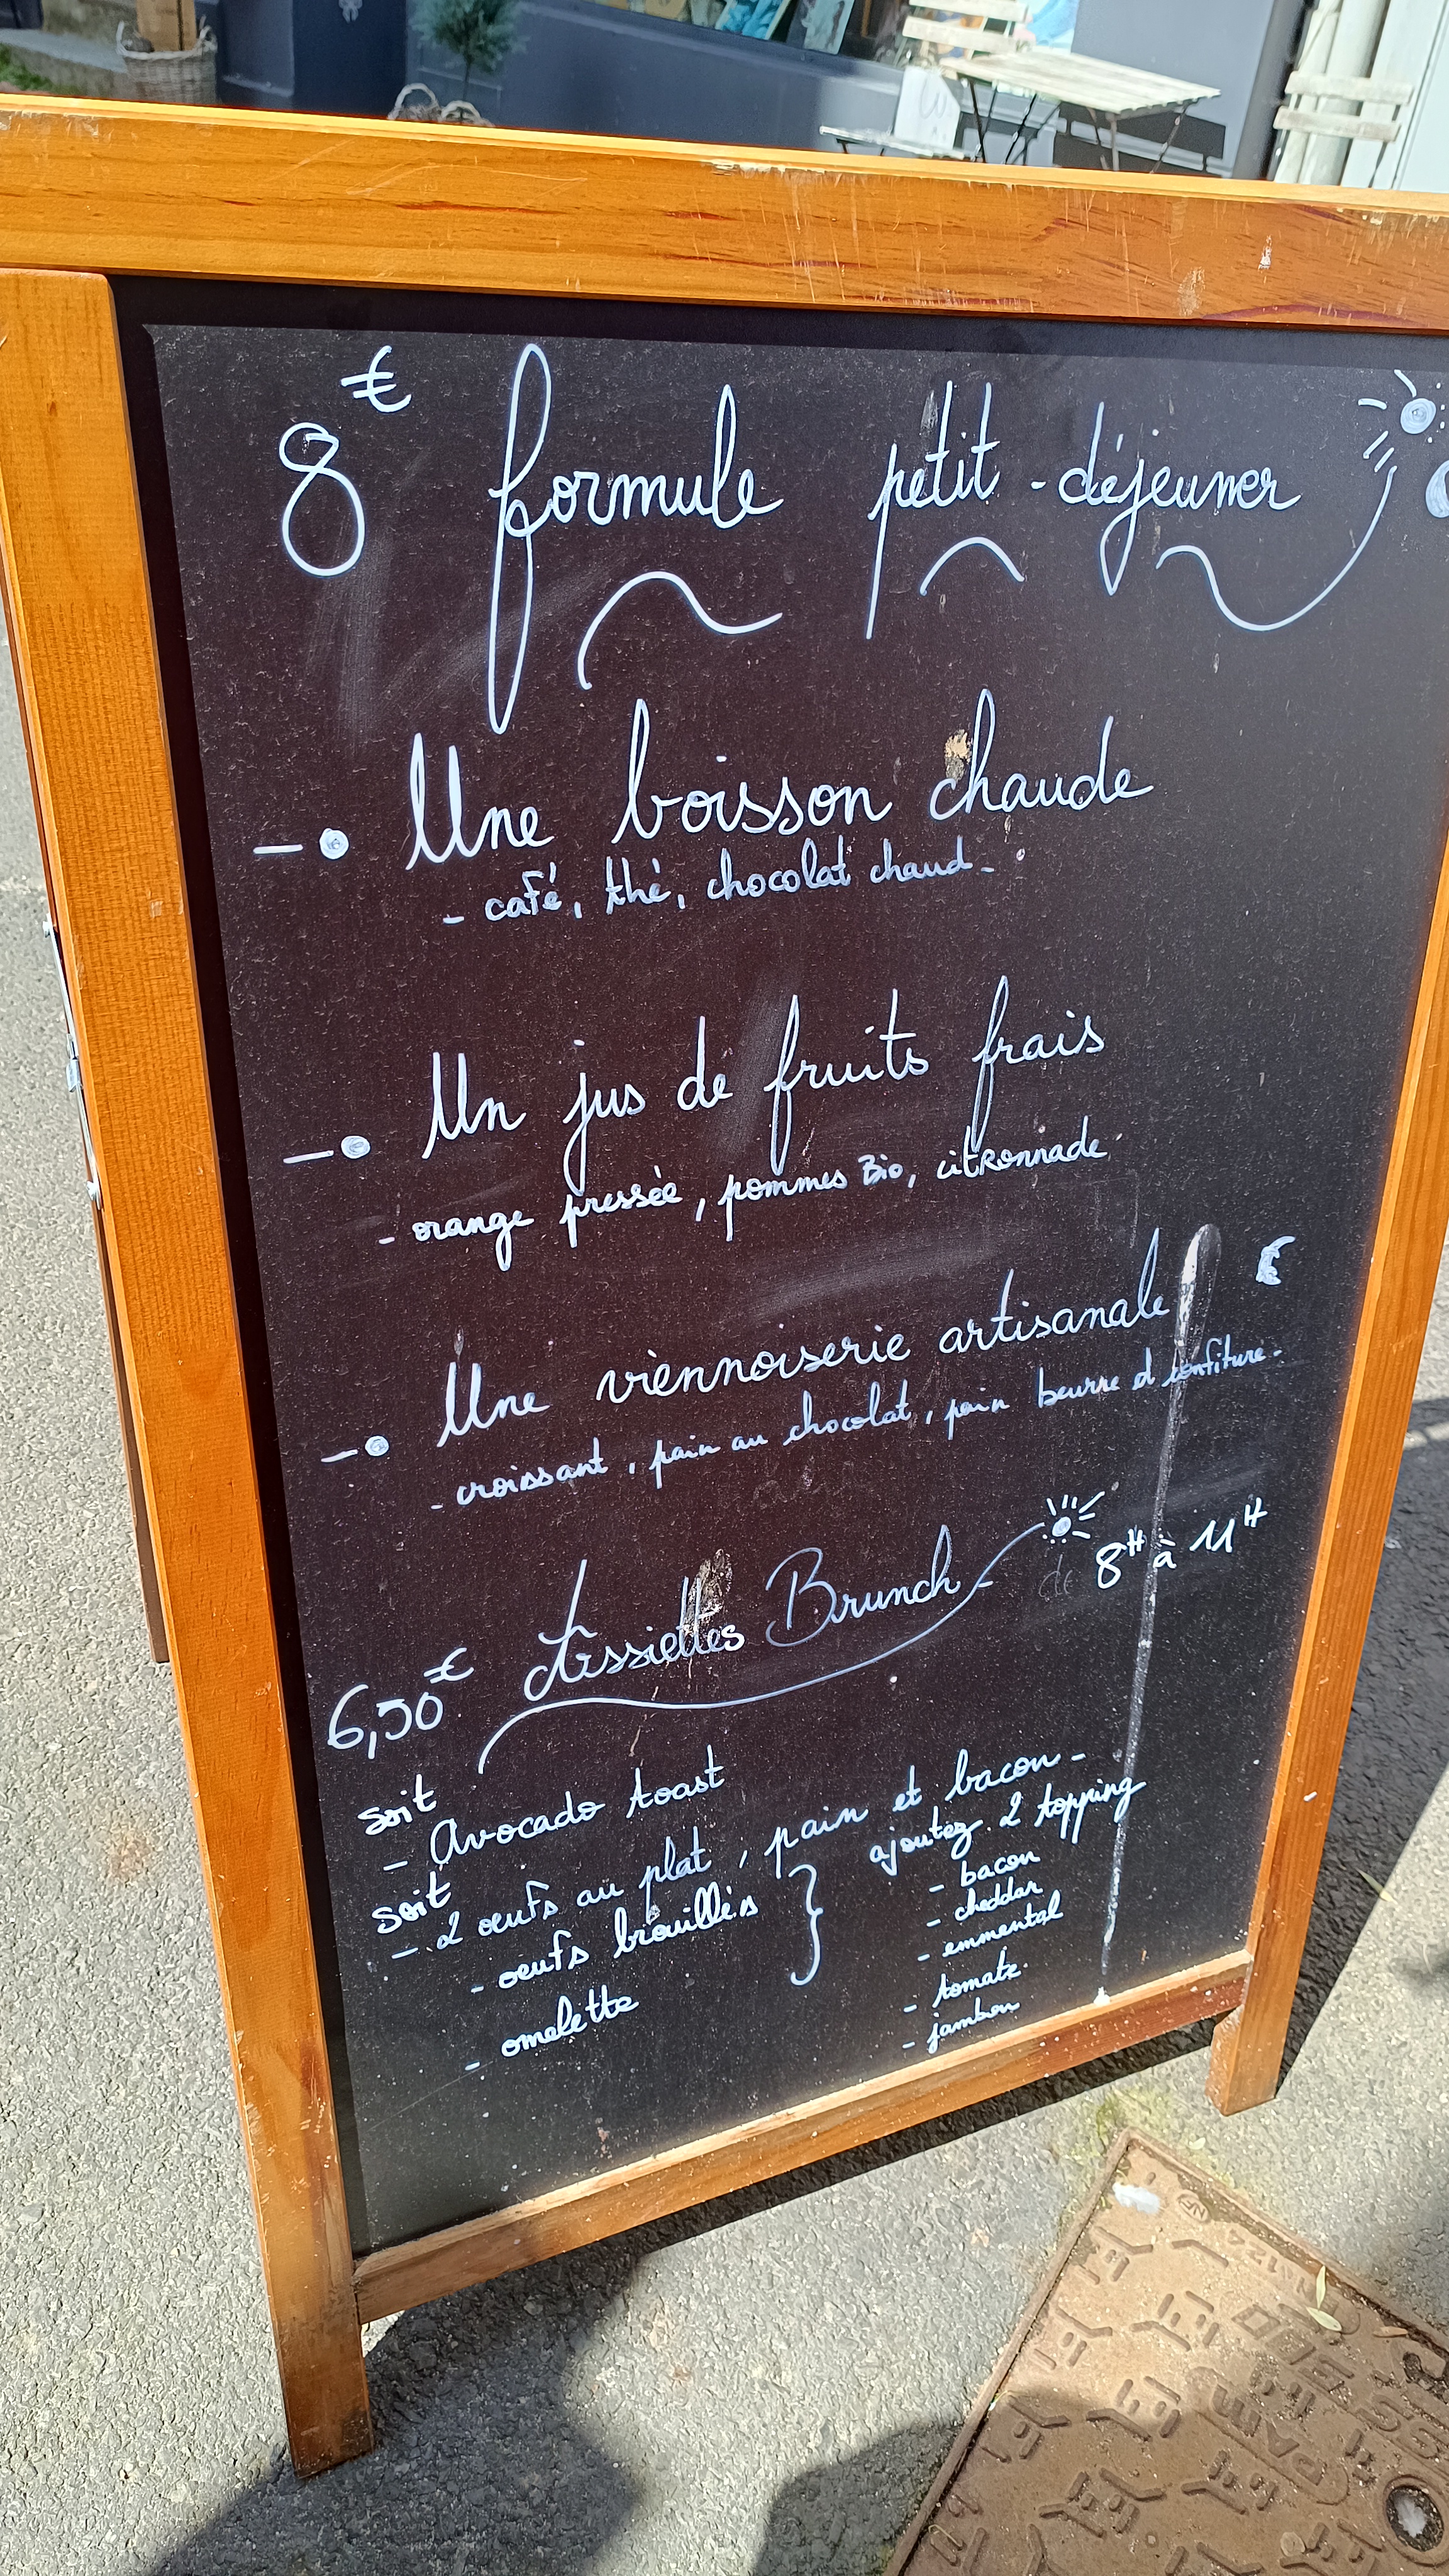 8€ formule petit-déjeuner
Une boisson chaude
- café, thé, chocolat chaud -
Un jus de fruits frais
- orange pressée, pommes Bio, citronnade
Une viennoiserie artisanale
- croissant, pain au chocolat, pain beurre et confiture -
6,50€ Assiettes Brunch - de 8H à 11H
soit
- Avocado toast
soit
- 2 œufs au plat, pain et bacon -
- œufs brouillés } ajoutez 2 topping
- omelette
- bacon
- cheddar
- emmental
- tomate
- jambon